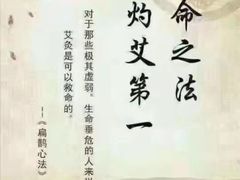 命之法
灼艾第一
对于那些极其虚弱。生命垂危的人来
艾灸是可以救命的。
--《扁鹊心法》